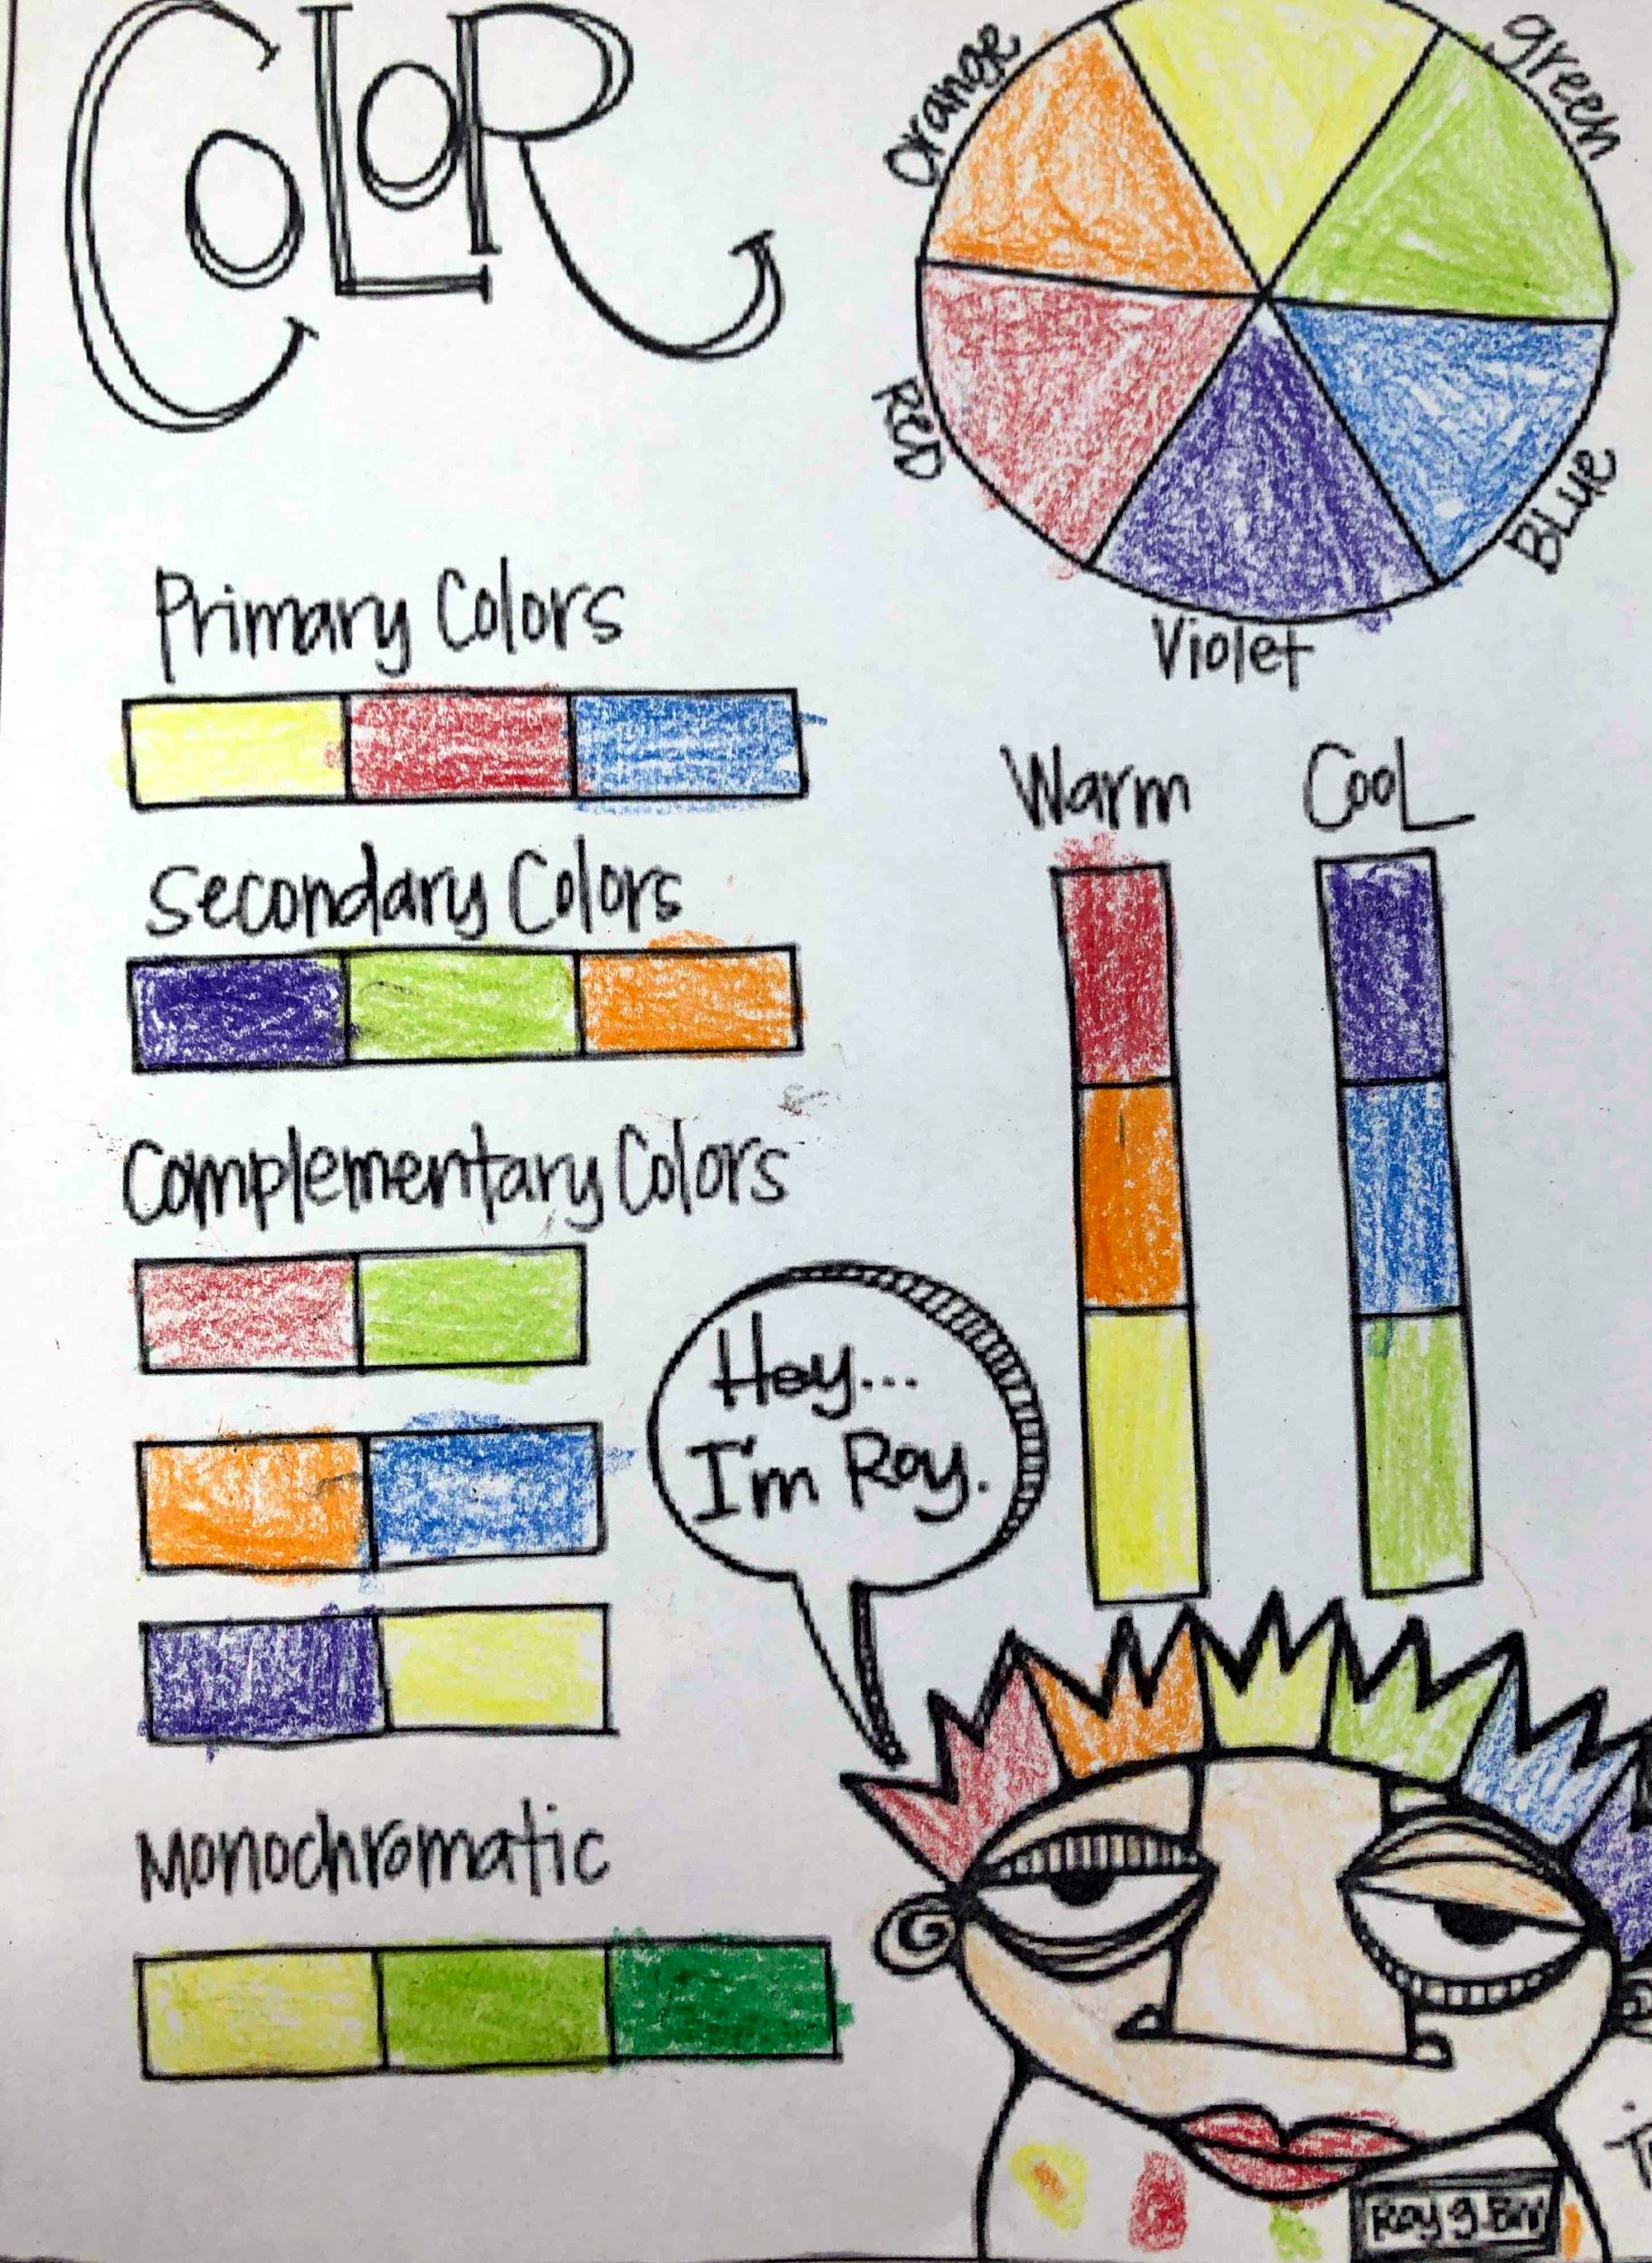 COLOR
orange
green
RED
BLue
Violet
Primary Colors
Secondary Colors
Complementary Colors
Monochromatic
Warm
CooL
Hey...
I'm Roy.
Roy g. Biv